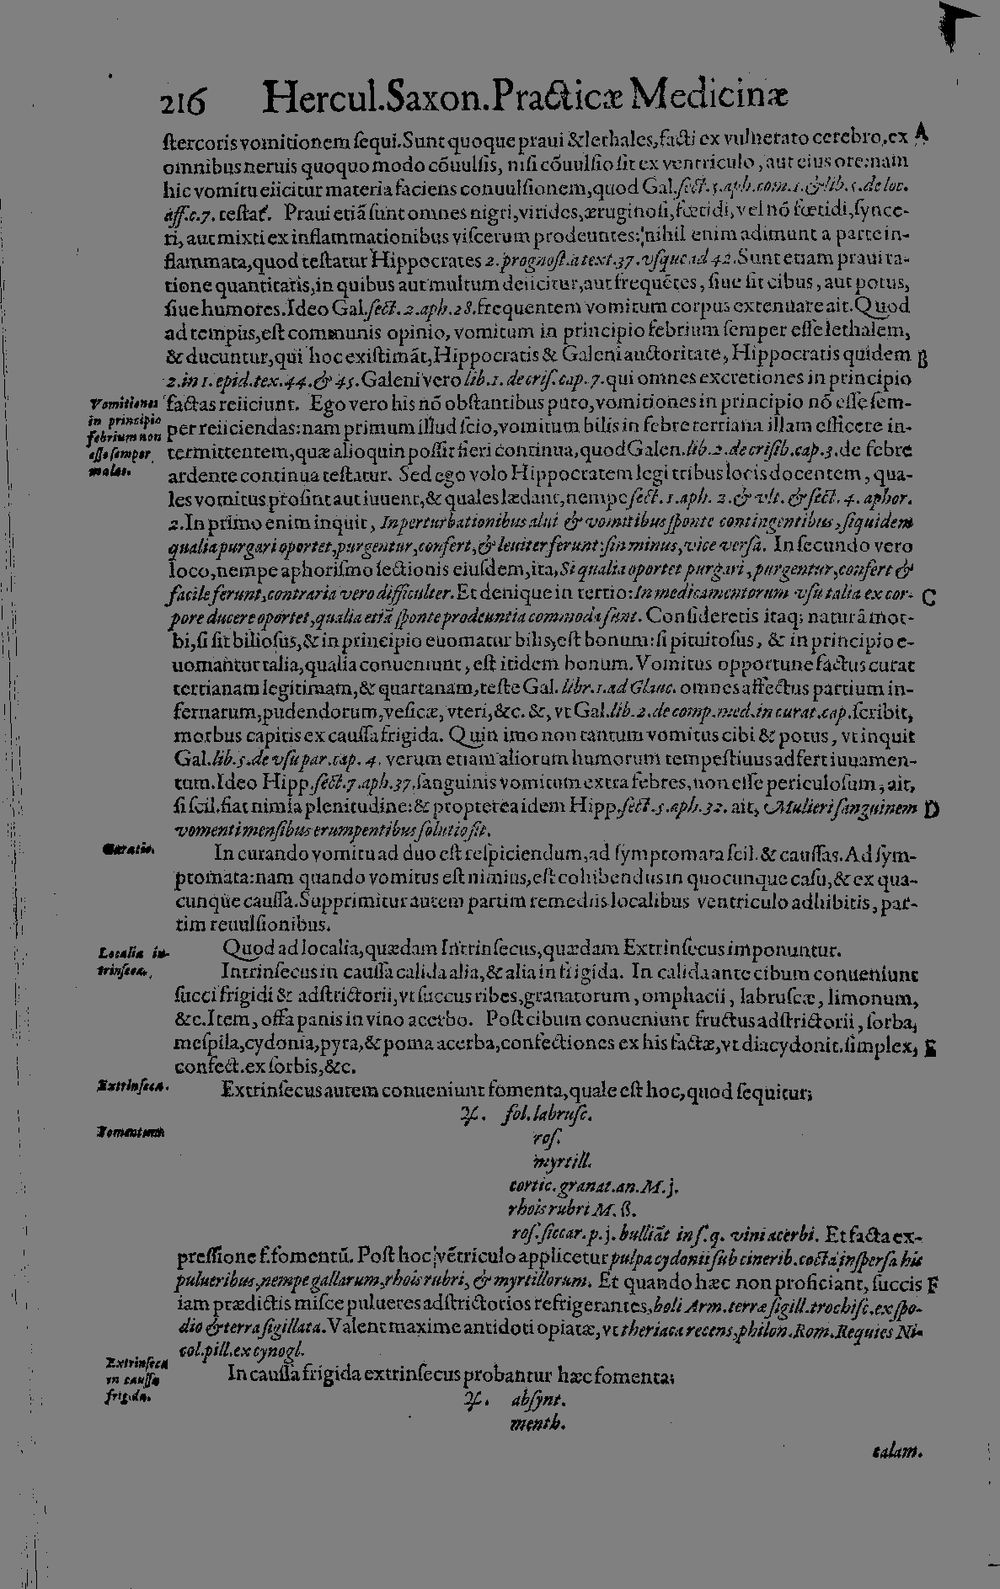 216 Hercul. Saxon. Practicæ Medicinæ
ſtercoris vomitionem ſequi. Sunt quoque praui & lethales, facti ex vulnerato cerebro, ex A
omnibus neruis quoquo modo cõuulſis, niſi cõuulſio ſit ex ventriculo, aut eius ore: nam
hic vomitu eiicitur materia faciens conuulſionem, quod Gal. ſect. 5. aph. com. 1. & lib. 5. de loc.
aff. c. 7. teſtat. Praui etiã ſunt omnes nigri, virides, æruginoſi, fœtidi, vel nõ fœtidi, ſynce-
ri, aut mixti ex inflammationibus viſcerum prodeuntes: nihil enim adimunt a parte in-
flammata, quod teſtatur Hippocrates 2. prognoſt. à text. 37. vſque ad 42. Sunt etiam praui ra-
tione quantitatis, in quibus aut multum deiicitur, aut frequẽtes, ſiue ſit cibus, aut potus,
ſiue humores. Ideo Gal. ſect. 2. aph. 28. frequentem vomitum corpus extenuare ait. Quod
ad tempus, eſt communis opinio, vomitum in principio febrium ſemper eſſe lethalem,
& ducuntur, qui hoc exiſtimãt, Hippocratis & Galeni auctoritate, Hippocratis quidem B
2. in 1. epid. tex. 44. & 45. Galeni vero lib. 1. de criſ. cap. 7. qui omnes excretiones in principio
Vomitiones
in principio
febrium non
eſſe ſemper
malas.
factas reiiciunt. Ego vero his nõ obſtantibus puto, vomitiones in principio nõ eſſe ſem-
per reiiciendas: nam primum illud ſcio, vomitum bilis in febre tertiana illam efficere in-
termittentem, quæ alioquin poſſit fieri continua, quod Galen. lib. 2. de criſib. cap. 3. de febre
ardente continua teſtatur. Sed ego volo Hippocratem legi tribus locis docentem, qua-
les vomitus proſint aut iuuent, & quales lædant, nempe ſect. 1. aph. 2. & vlt. & ſect. 4. aphor.
2. In primo enim inquit, In perturbationibus alui & vomitibus ſponte contingentibus, ſi quidem
qualia purgari oportet, purgentur, confert, & leuiter ferunt: ſin minus, vice verſa. In ſecundo vero
loco, nempe aphoriſmo ſectionis eiuſdem, ita, Si qualia oportet purgari, purgentur, confert &
facile ferunt, contraria vero difficulter. Et denique in tertio: In medicamentorum vſu talia ex cor- C
pore ducere oportet, qualia etiã ſponte prodeuntia commoda ſunt. Conſideretis itaq; naturã mor-
bi, ſi ſit bilioſus, & in principio euomatur bilis, eſt bonum: ſi pituitoſus, & in principio e-
uomantur talia, qualia conueniunt, eſt itidem bonum. Vomitus opportune factus curat
tertianam legitimam, & quartanam, teſte Gal. libr. 1. ad Glauc. omnes affectus partium in-
fernarum, pudendorum, veſicæ, vteri, &c. &, vt Gal. lib. 2. de comp. med. in curat. cap. ſcribit,
morbus capitis ex cauſſa frigida. Quin imo non tantum vomitus cibi & potus, vt inquit
Gal. lib. 5. de vſu par. cap. 4. verum etiam aliorum humorum tempeſtiuus adfert iuuamen-
tum. Ideo Hipp. ſect. 7. aph. 37. ſanguinis vomitum extra febres, non eſſe periculoſum, ait,
ſi ſcil. fiat nimia plenitudine: & propterea idem Hipp. ſect. 5. aph. 32. ait, Mulieri ſanguinem D
vomenti menſibus erumpentibus ſolutio fit.
Curatio.
In curando vomitu ad duo eſt reſpiciendum, ad ſymptomata ſcil. & cauſſas. Ad ſym-
ptomata: nam quando vomitus eſt nimius, eſt cohibendus in quocunque caſu, & ex qua-
cunque cauſſa. Supprimitur autem partim remediis localibus ventriculo adhibitis, par-
tim reuulſionibus.
Localia in-
trinſeca.
Quod ad localia, quædam Intrinſecus, quædam Extrinſecus imponuntur.
Intrinſecus in cauſſa calida alia, & alia in frigida. In calida ante cibum conueniunt
ſucci frigidi & adſtrictorii, vt ſuccus ribes, granatorum, omphacii, labruſcæ, limonum,
&c. Item, offa panis in vino acerbo. Poſt cibum conueniunt fructus adſtrictorii, ſorba,
meſpila, cydonia, pyra, & poma acerba, confectiones ex his factæ, vt diacydonit. ſimplex, E
confect. ex ſorbis, &c.
Extrinſeca.
Extrinſecus autem conueniunt fomenta, quale eſt hoc, quod ſequitur;
Fomentum
℞. fol. labruſc.
roſ.
myrtill.
cortic. granat. an. M. j.
rhois rubri M. ß.
roſ. ſiccar. p. j. bulliãt in ſ. q. vini acerbi. Et facta ex-
preſſione f. fomentũ. Poſt hoc vẽtriculo applicetur pulpa cydonii ſub cinerib. cocta, inſperſa his
pulueribus, nempe gallarum, rhois rubri, & myrtillorum. Et quando hæc non proficiant, ſuccis F
iam prædictis miſce pulueres adſtrictorios refrigerantes, boli Arm. terræ ſigill. trochiſc. ex ſpo-
dio & terra ſigillata. Valent maxime antidoti opiatæ, vt theriaca recens, philon. Rom. Requies Ni-
col. pill. ex cynogl.
Extrinſeca
in cauſſa
frigida.
In cauſſa frigida extrinſecus probantur hæc fomenta;
℞. abſynt.
menth.
calam.